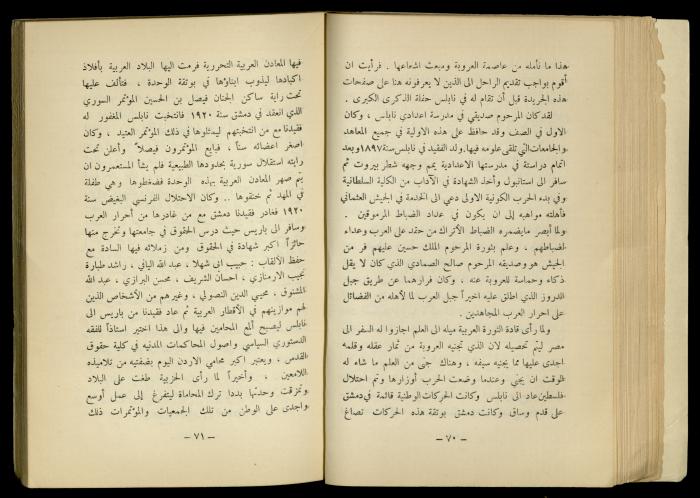 هذا ما نأمله من عاصمة العروبة ومبعث اشعاعها . فرأيت ان
أقوم بواجب تقديم الراحل الى الذين لا يعرفونه هنا على صفحات
هذه الجريدة قبل أن تقام له في نابلس حفلة الذكرى الكبرى .
لقد كان المرحوم صديقي في مدرسة اعدادي نابلس ، وكان
الاول في الصف وقد حافظ على هذه الاولية في جميع المعاهد
والجامعات التي تلقى علومه فيها. ولد الفقيد في نابلس سنة ١٨٩٧ وبعد
اتمام دراسته في مدرستها الاعدادية يمم وجهه شطر بيروت ثم
سافر الى استانبول وأخذ الشهادة في الآداب من الكلية السلطانية
وفي بدء الحرب الكونية الاولى دعي الى الخدمة في الجيش العثماني
فأهلته مواهبه إلى ان يكون في عداد الضباط المرموقين .
ولما أبصر مايضمره الضباط الأتراك من حقد على العرب وعداء
لضباطهم ، وعلم بثورة المرحوم الملك حسين عليهم فر من
الجيش هو وصديقه المرحوم صالح الصمادي الذي كان لا يقل
ذكاء وحماسة للعروبة عنه ، وكان فرارهما عن طريق جبل
الدروز الذي اطلق عليه اخيراً جبل العرب لما لأهله من الفضائل
على احرار العرب المجاهدين .
ولما رأى قادة الثورة العربية ميله الى العلم اجازوا له السفر الى
مصر ليتم تحصيله لان الذي تجنيه العروبة من ثمار عقله وقلمه
اجدى عليها مما يجنيه سيفه ، وهناك جنى من العلم ما شاء له
الوقت ان يجني وعندما وضعت الحرب أوزارها وتم احتلال
فلسطين عاد الى نابلس وكانت الحركات الوطنية قائمة في دمشق
على قدم وساق وكانت دمشق بوتقة هذه الحركات تصاغ
— ٧٠ —
فيها المعادن العربية التحررية فرمت اليها البلاد العربية بأفلاذ
اكبادها ليذوب ابناؤها في بوتقة الوحدة ، فتألف عليها
تحت راية ساكن الجنان فيصل بن الحسين المؤتمر السوري
الذي انعقد في دمشق سنة ١٩٢٠ فانتخبت نابلس المغفور له
فقيدنا مع من انتخبتهم ليمثلوها في ذلك المؤتمر العتيد ، وكان
اصغر اعضائه سناً ، فبايع المؤتمرون فيصلاً وأعلن تحت
رايته استقلال سورية بحدودها الطبيعية فلم يشأ المستعمرون ان
يتم صهر المعادن العربية بهذه الوحدة فضغطوها وهي طفلة
في المهد ثم خنقوها .. وكان الاحتلال الفرنسي البغيض سنة
١٩٢٠ فغادر فقيدنا دمشق مع من غادرها من أحرار العرب
وسافر الى باريس حيث درس الحقوق في جامعتها وتخرج منها
حائزاً اكبر شهادة في الحقوق ومن زملائه فيها السادة مع
حفظ الألقاب : حبيب ابي شهلا ، عبد الله اليافي ، راشد طبارة
نجيب الارمنازي ، احسان الشريف ، محسن البرازي ، عبد الله
المشنوق ، محيي الدين النصولي ، وغيرهم من الأشخاص الذين
لهم موازينهم في الأقطار العربية ثم عاد فقيدنا من باريس الى
نابلس ليصبح ألمع المحامين فيها والى هذا اختير استاذاً للفقه
الدستوري السياسي واصول المحاكمات المدنيه في كلية حقوق
القدس ، ويعتبر اكبر محامي الاردن اليوم بضفتيه من تلاميذه
اللامعين ، وأخيراً لما رأى الحزبية طغت على البلاد
ومزقت وحدتها بددا ترك المحاماة ليتفرغ إلى عمل أوسع
واجدى على الوطن من تلك الجمعيات والمؤتمرات ذلك
— ٧١ —